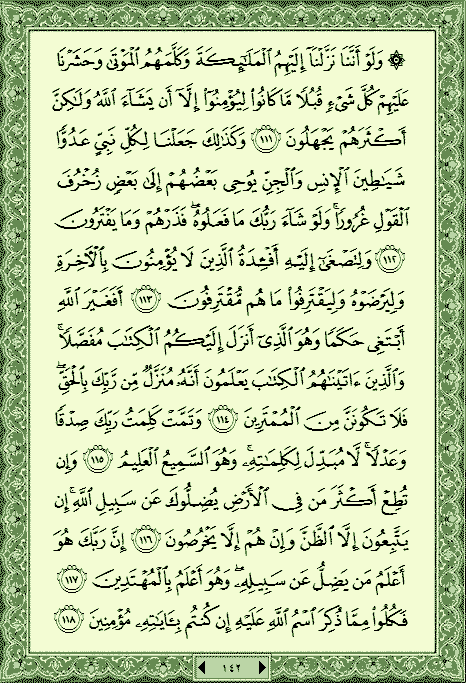 ۞ وَلَوْ أَنَّنَا نَزَّلْنَآ إِلَيْهِمُ ٱلْمَلَـٰٓئِكَةَ وَكَلَّمَهُمُ ٱلْمَوْتَىٰ وَحَشَرْنَا
عَلَيْهِمْ كُلَّ شَىْءٍ قُبُلًا مَّا كَانُوا۟ لِيُؤْمِنُوٓا۟ إِلَّآ أَن يَشَآءَ ٱللَّهُ وَلَـٰكِنَّ
أَكْثَرَهُمْ يَجْهَلُونَ ١١١ وَكَذَٰلِكَ جَعَلْنَا لِكُلِّ نَبِىٍّ عَدُوًّا
شَيَـٰطِينَ ٱلْإِنسِ وَٱلْجِنِّ يُوحِى بَعْضُهُمْ إِلَىٰ بَعْضٍ زُخْرُفَ
ٱلْقَوْلِ غُرُورًا ۚ وَلَوْ شَآءَ رَبُّكَ مَا فَعَلُوهُ ۖ فَذَرْهُمْ وَمَا يَفْتَرُونَ
١١٢ وَلِتَصْغَىٰٓ إِلَيْهِ أَفْـِٔدَةُ ٱلَّذِينَ لَا يُؤْمِنُونَ بِٱلْـَٔاخِرَةِ
وَلِيَرْضَوْهُ وَلِيَقْتَرِفُوا۟ مَا هُم مُّقْتَرِفُونَ ١١٣ أَفَغَيْرَ ٱللَّهِ
أَبْتَغِى حَكَمًا وَهُوَ ٱلَّذِىٓ أَنزَلَ إِلَيْكُمُ ٱلْكِتَـٰبَ مُفَصَّلًا ۚ
وَٱلَّذِينَ ءَاتَيْنَـٰهُمُ ٱلْكِتَـٰبَ يَعْلَمُونَ أَنَّهُۥ مُنَزَّلٌ مِّن رَّبِّكَ بِٱلْحَقِّ ۖ
فَلَا تَكُونَنَّ مِنَ ٱلْمُمْتَرِينَ ١١٤ وَتَمَّتْ كَلِمَتُ رَبِّكَ صِدْقًا
وَعَدْلًا ۚ لَّا مُبَدِّلَ لِكَلِمَـٰتِهِۦ ۚ وَهُوَ ٱلسَّمِيعُ ٱلْعَلِيمُ ١١٥ وَإِن
تُطِعْ أَكْثَرَ مَن فِى ٱلْأَرْضِ يُضِلُّوكَ عَن سَبِيلِ ٱللَّهِ ۚ إِن
يَتَّبِعُونَ إِلَّا ٱلظَّنَّ وَإِنْ هُمْ إِلَّا يَخْرُصُونَ ١١٦ إِنَّ رَبَّكَ هُوَ
أَعْلَمُ مَن يَضِلُّ عَن سَبِيلِهِۦ ۖ وَهُوَ أَعْلَمُ بِٱلْمُهْتَدِينَ ١١٧
فَكُلُوا۟ مِمَّا ذُكِرَ ٱسْمُ ٱللَّهِ عَلَيْهِ إِن كُنتُم بِـَٔايَـٰتِهِۦ مُؤْمِنِينَ ١١٨
١٤٢